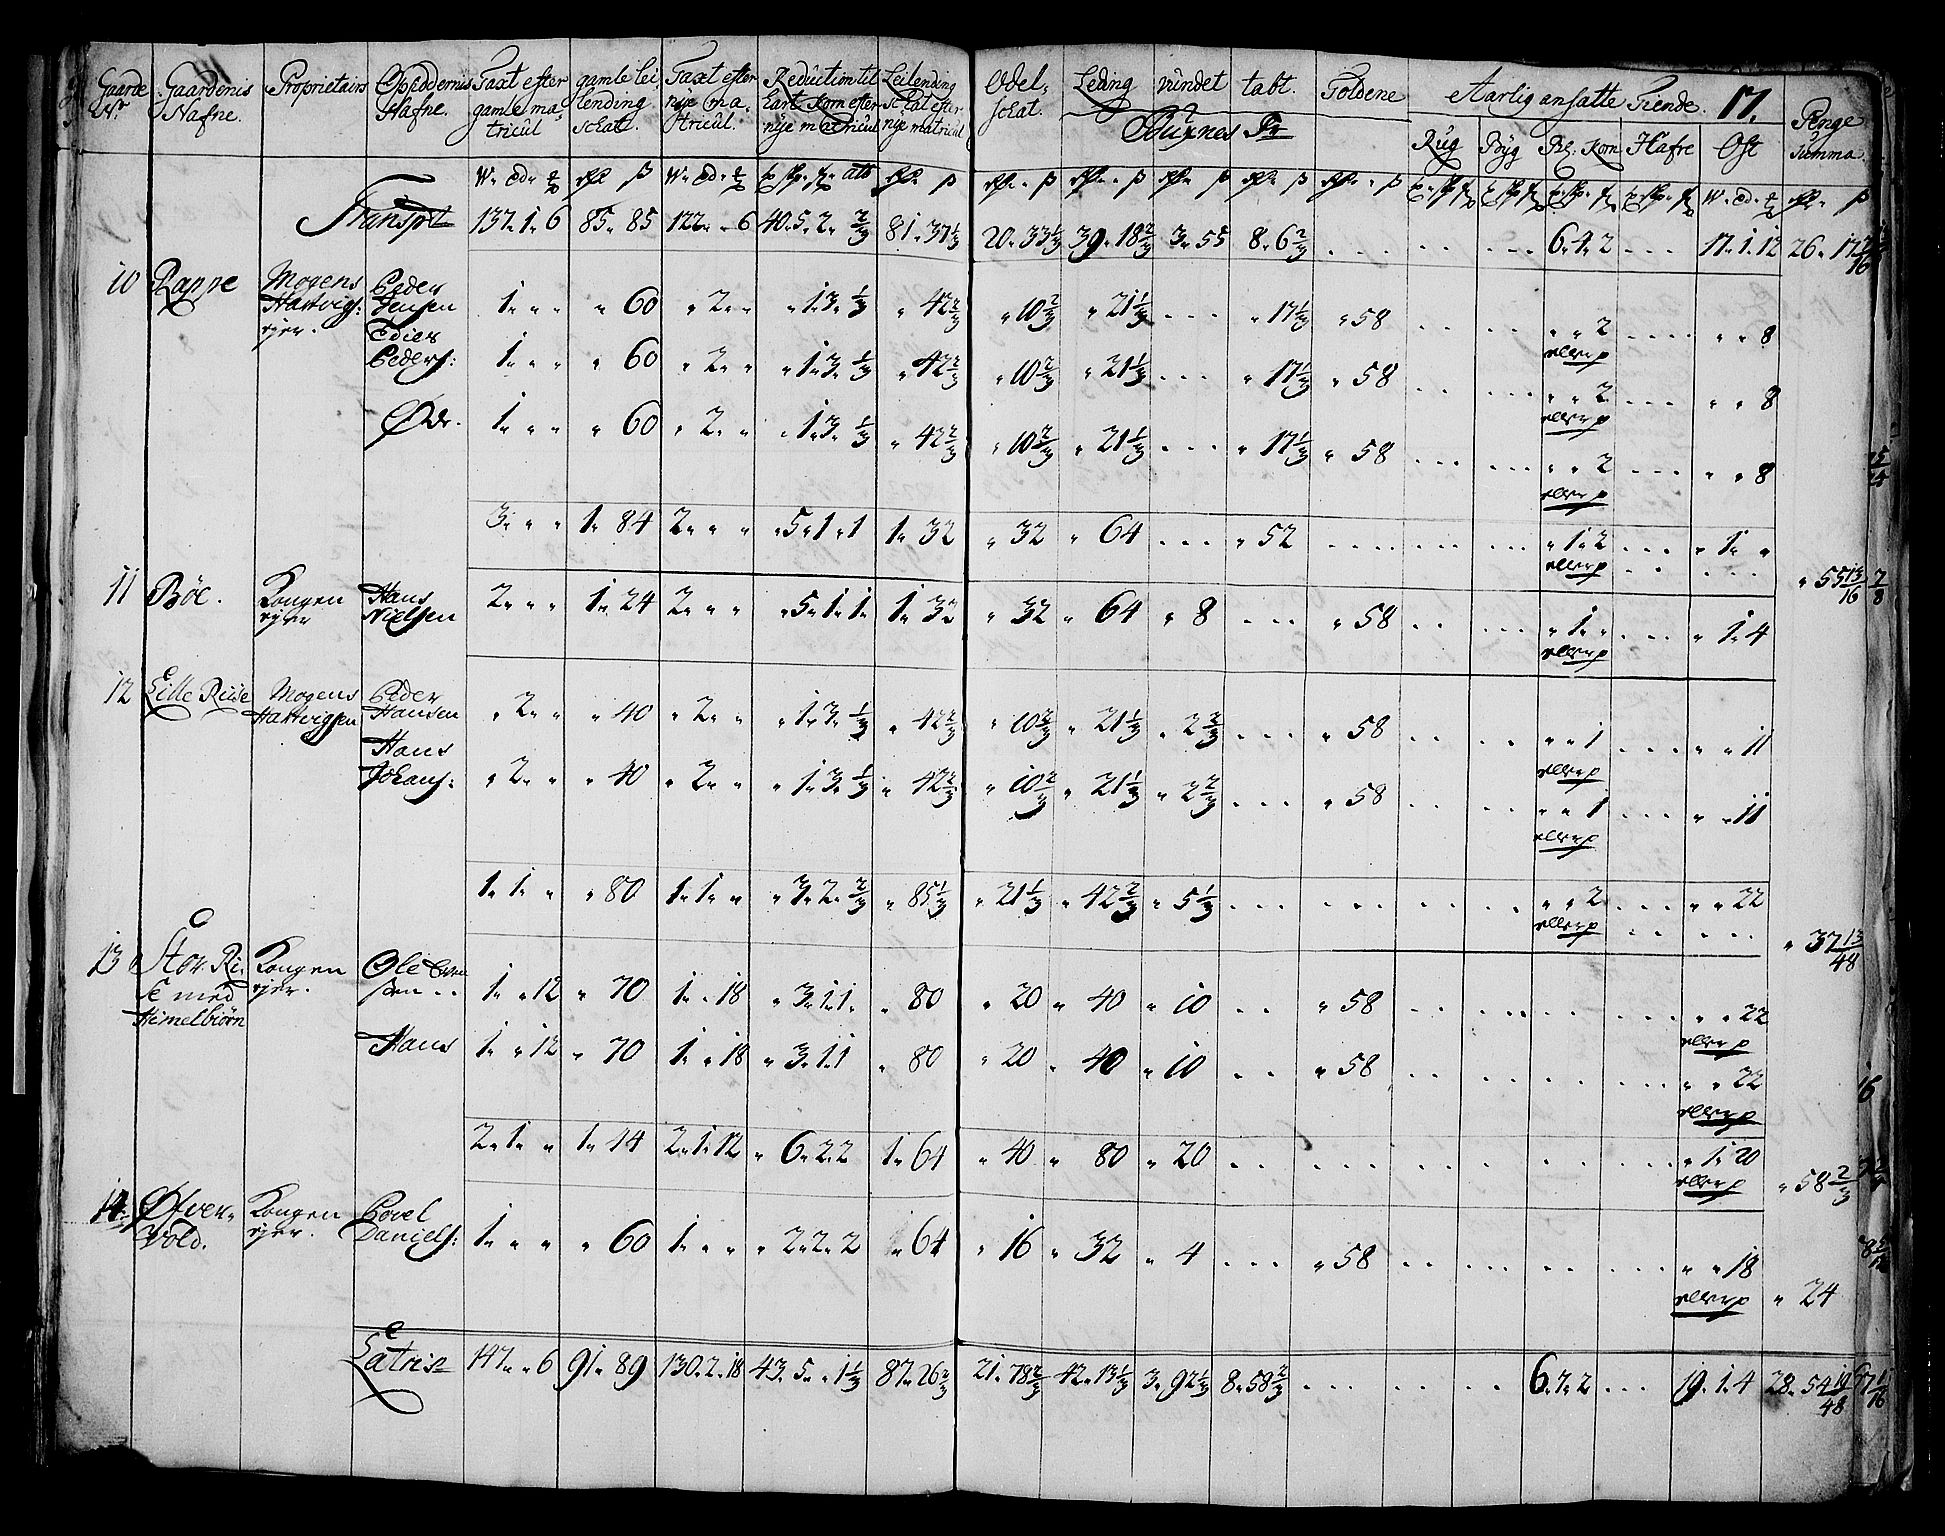 Gaarde Nr. Gaardenis Nafne. Proprietairs Opsiddernis Nafne. Taxt efter gamle matricul gamle leilending schatt. Taxt efter nye matricul. Reduction til hart Korn efter nye matricul Leilending schat efter nye matricul Odelschat. Leding vundet tabt. Toldene Aarlig ansatte Tiende. 17. Penge Summa
Buxnes Fr
Rug Byg Bl: Korn Hafre Ost
Transpt 137 1 6 85 85 122 - 6 40 5 2 2/3 81 37 1/3 20 33 1/3 39 18 2/3 3 55 8 6 2/3 6 4 2 17 1 12 26 17
10 Rappe Mogens Hartvigs: ejer. Peder Jensen 1 " " " 60 " 2 " " " 1 3 1/3 " 42 2/3 " 10 2/3 " 21 1/3 " 17 1/3 " 58 " " 2 " " 8
Peders: 1 " " " 60 " 2 " " " 1 3 1/3 " 42 2/3 " 10 2/3 " 21 1/3 " 17 1/3 " 58 " " 2 " " 8
Øde. 1 " " " 60 " 2 " " " 1 3 1/3 " 42 2/3 " 10 2/3 " 21 1/3 " 17 1/3 " 58 " " 2 " " 8
3 " " 1 84 2 " " " 5 1 1 1 32 " 32 " 64 " 52 " 1 2 " 1 " " 55 13/16
11 Böe. Kongen ejer Hans Nielsen 2 " " 1 24 2 " " " 5 1 1 1 32 " 32 " 64 " 8 " 58 " 1 " " 1 4
12 Lille Riise Mogens Hartvigsen Peder Hansen " 2 " " 40 " 2 " " " 1 3 1/3 " 42 2/3 " 10 2/3 " 21 1/3 " 2 2/3 " 58 " " 1 " " 11
Hans Johans: " 2 " " 40 " 2 " " " 1 3 1/3 " 42 2/3 " 10 2/3 " 21 1/3 " 2 2/3 " 58 " " 1 " " 11
1 1 " " 80 1 1 " " 3 2 2/3 " 85 1/3 " 21 1/3 " 42 2/3 " 5 1/3 " " 2 " " 22 " 37 13/48
13 Stor Rise med Himelbiörn Kongen ejer. Ole 1 " 12 " 70 1 " 18 " 3 1 1 " 80 " 20 " 40 " 10 " 58 " " 22
Hans 1 " 12 " 70 1 " 18 " 3 1 1 " 80 " 20 " 40 " 10 " 58 " " 22
2 1 " 1 44 2 1 12 " 6 2 2 1 64 " 40 " 80 " 20 " 1 20 " 58 2/3
14 Øfver Vold. Kongen ejer. Povel Daniels: 1 " " " 60 1 " " " 2 2 2 " 64 " 16 " 32 " 4 " 58 " " 18 " 24
Lateris 147 " 6 91 89 130 2 18 43 5 " 1 1/3 87 26 2/3 21 78 2/3 42 13 1/3 3 92 1/3 8 58 2/3 6 7 2 19 1 4 28 54 19/48